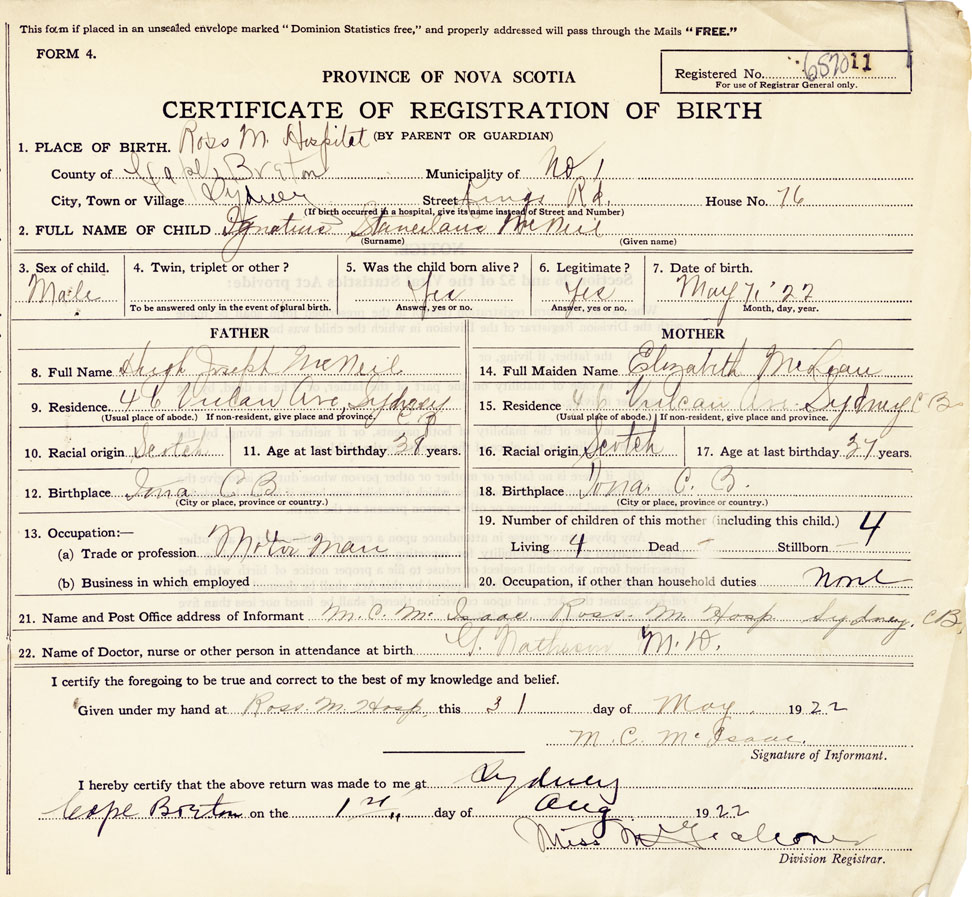 This form if placed in an unsealed envelope marked "Dominion Statistics free," and properly addressed will pass through the Mails "FREE."
FORM 4.
Registered No. 657011
For use of Registrar General only.
PROVINCE OF NOVA SCOTIA
CERTIFICATE OF REGISTRATION OF BIRTH
(BY PARENT OR GUARDIAN)
1. PLACE OF BIRTH. Ross M. Hospital
County of Cape Breton Municipality of No 1
City, Town or Village Sydney Street Kings Rd. House No. 76
(If birth occurred in a hospital, give its name instead of Street and Number)
2. FULL NAME OF CHILD Ignatius Stanislaus McNeil
(Surname) (Given name)
3. Sex of child. Male
4. Twin, triplet or other?
To be answered only in the event of plural birth.
5. Was the child born alive? Yes
Answer, yes or no.
6. Legitimate? Yes
Answer, yes or no.
7. Date of birth. May 7, '22
Month, day, year.
FATHER
8. Full Name Hugh Joseph McNeil
9. Residence. 46 Vulcan Ave, Sydney C B
(Usual place of abode.) If non-resident, give place and province.
10. Racial origin Scotch 11. Age at last birthday 38 years.
12. Birthplace Iona C B.
(City or place, province or country.)
13. Occupation:—
(a) Trade or profession Motor Man
(b) Business in which employed
MOTHER
14. Full Maiden Name Elizabeth McLean
15. Residence 4 Vulcan Ave. Sydney C B
(Usual place of abode.) If non-resident, give place and province.
16. Racial origin Scotch 17. Age at last birthday 37 years.
18. Birthplace Iona. C. B.
(City or place, province or country.)
19. Number of children of this mother (including this child.) 4
Living 4 Dead - Stillborn -
20. Occupation, if other than household duties None
21. Name and Post Office address of Informant M. C. Mc Isaac Ross. M. Hosp. Sydney, C B,
22. Name of Doctor, nurse or other person in attendance at birth M. D.
I certify the foregoing to be true and correct to the best of my knowledge and belief.
Given under my hand at Ross M. Hosp, this 31 day of May 1922
M. C. McIsaac.
Signature of Informant.
I hereby certify that the above return was made to me at Sydney
Cape Breton on the 1st day of Aug 1922
Miss
Division Registrar.